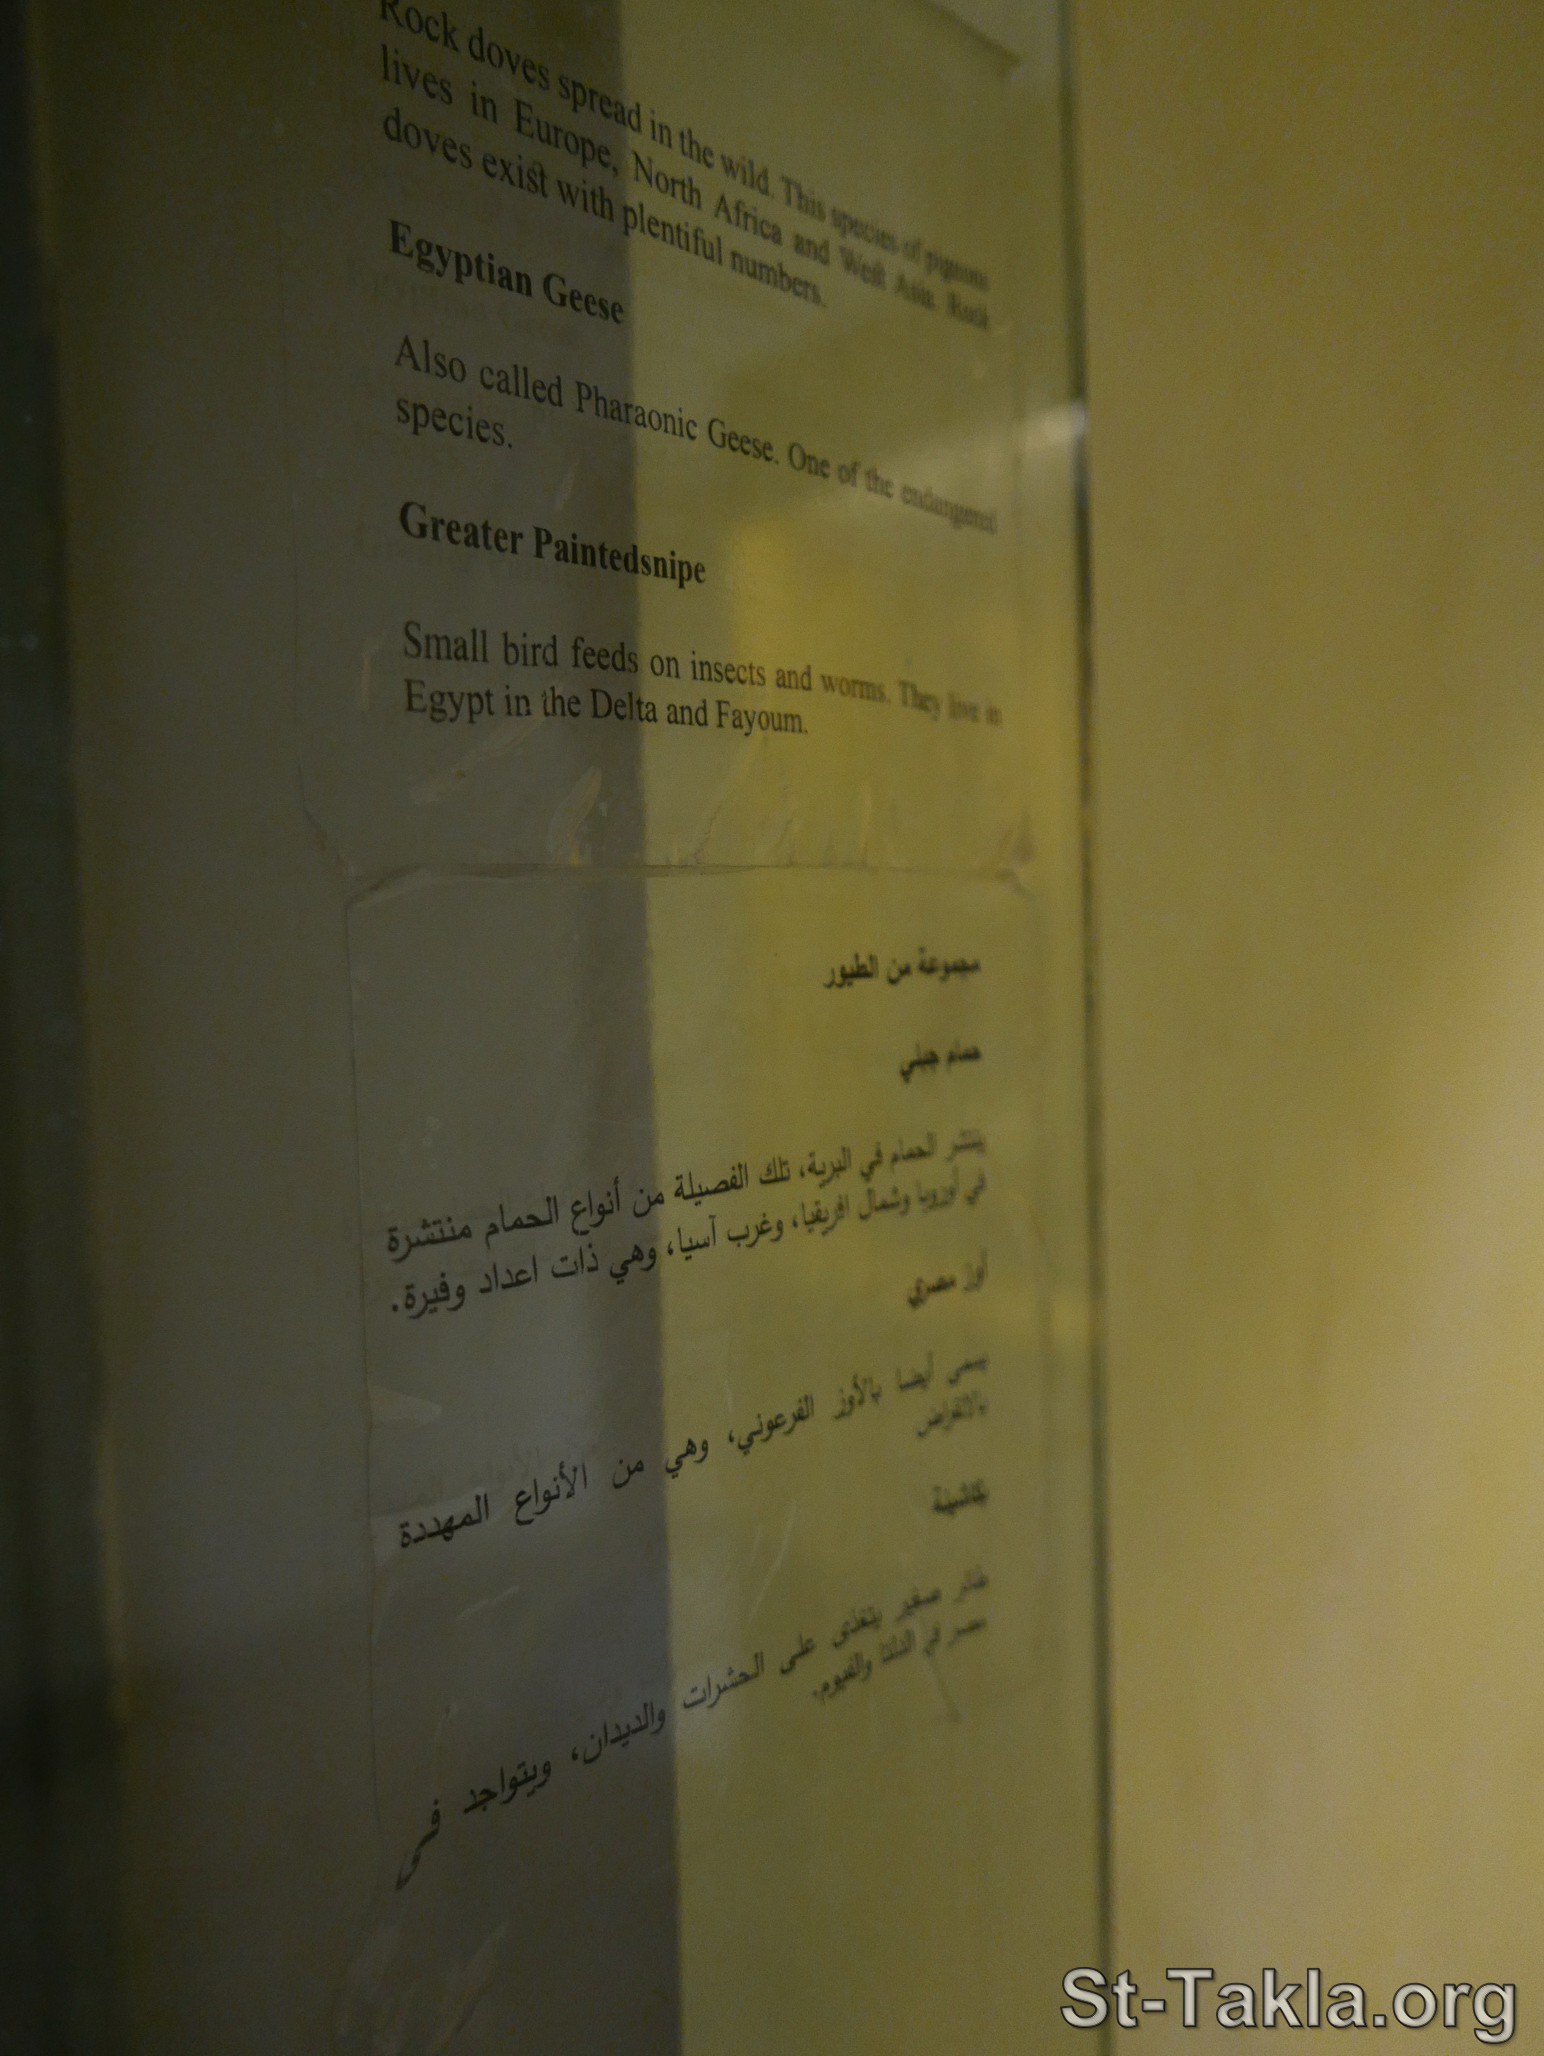 Rock doves spread in the wild. This species of pigeons
lives in Europe, North Africa and West Asia. Rock
doves exist with plentiful numbers.
Egyptian Geese
Also called Pharaonic Geese. One of the endangered
species.
Greater Paintedsnipe
Small bird feeds on insects and worms. They live in
Egypt in the Delta and Fayoum.
مجموعة من الطيور
حمام جبلي
ينتشر الحمام في البرية، تلك الفصيلة من أنواع الحمام منتشرة
في أوروبا وشمال افريقيا، وغرب آسيا، وهي ذات اعداد وفيرة.
أوز مصري
يسمى أيضا بالأوز الفرعوني، وهي من الأنواع المهددة
بالانقراض
بكاشينة
طائر صغير يتغذى على الحشرات والديدان، ويتواجد في
مصر في الدلتا والفيوم.
St-Takla.org